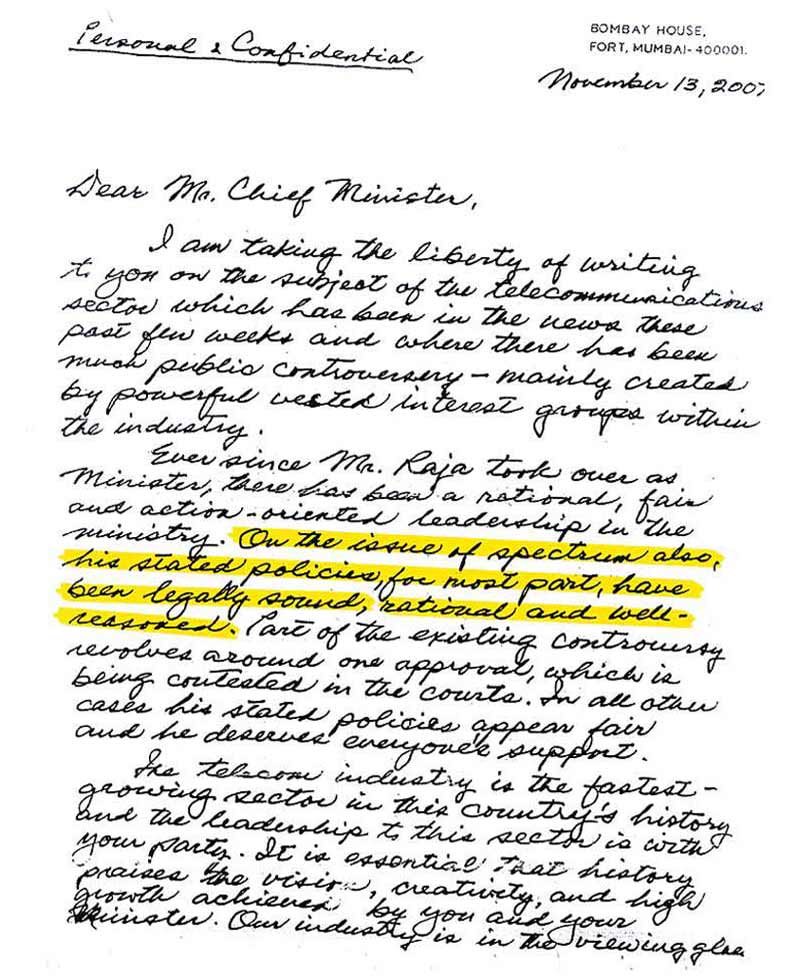 Personal & Confidential
BOMBAY HOUSE,
FORT, MUMBAI-400001.
November 13, 2007
Dear Mr. Chief Minister,
I am taking the liberty of writing
to you on the subject of the telecommunications
sector which has been in the news these
past few weeks and where there has been
much public controversy – mainly created
by powerful vested interest groups within
the industry.
Ever since Mr. Raja took over as
Minister, there has been a rational, fair
and action-oriented leadership in the
ministry. On the issue of spectrum also,
his stated policies, for most part, have
been legally sound, rational and well-
reasoned. Part of the existing controversy
revolves around one approval, which is
being contested in the courts. In all other
cases his stated policies appear fair
and he deserves everyone's support.
The telecom industry is the fastest-
growing sector in this country's history
and the leadership to this sector is with
your party. It is essential that history
praises the vision, creativity, and high
growth achieved by you and your
Minister. Our industry is in the viewing